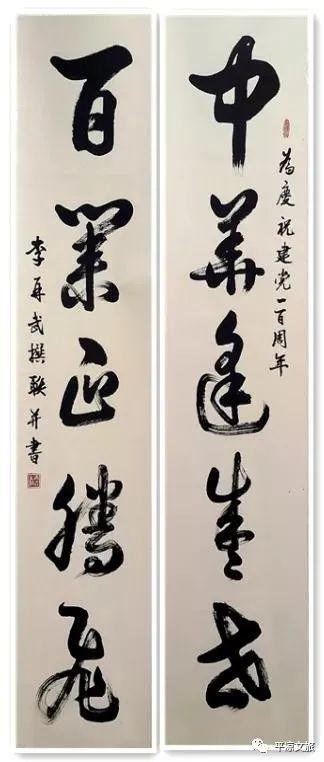 为慶祝建党一百周年
中華逢盛世
百業正騰飛
李再武撰联并書
平凉文旅